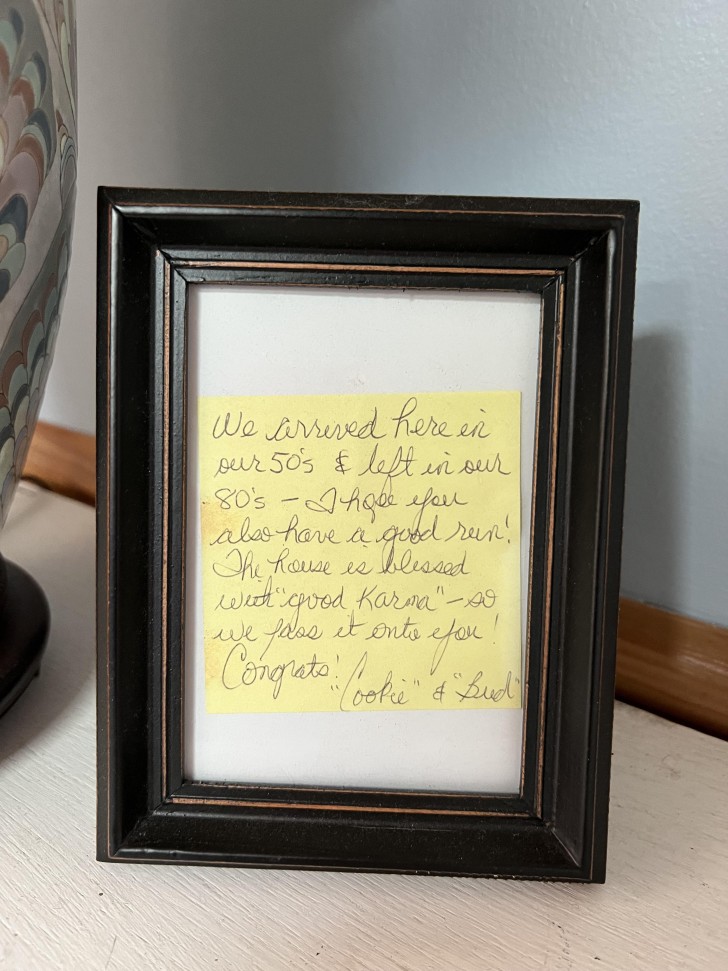 We arrived here in
our 50's & left in our
80's - I hope you
also have a good run!
The house is blessed
with "good Karma" - so
we pass it onto you!
Congrats!
"Cookie" & "Bud"